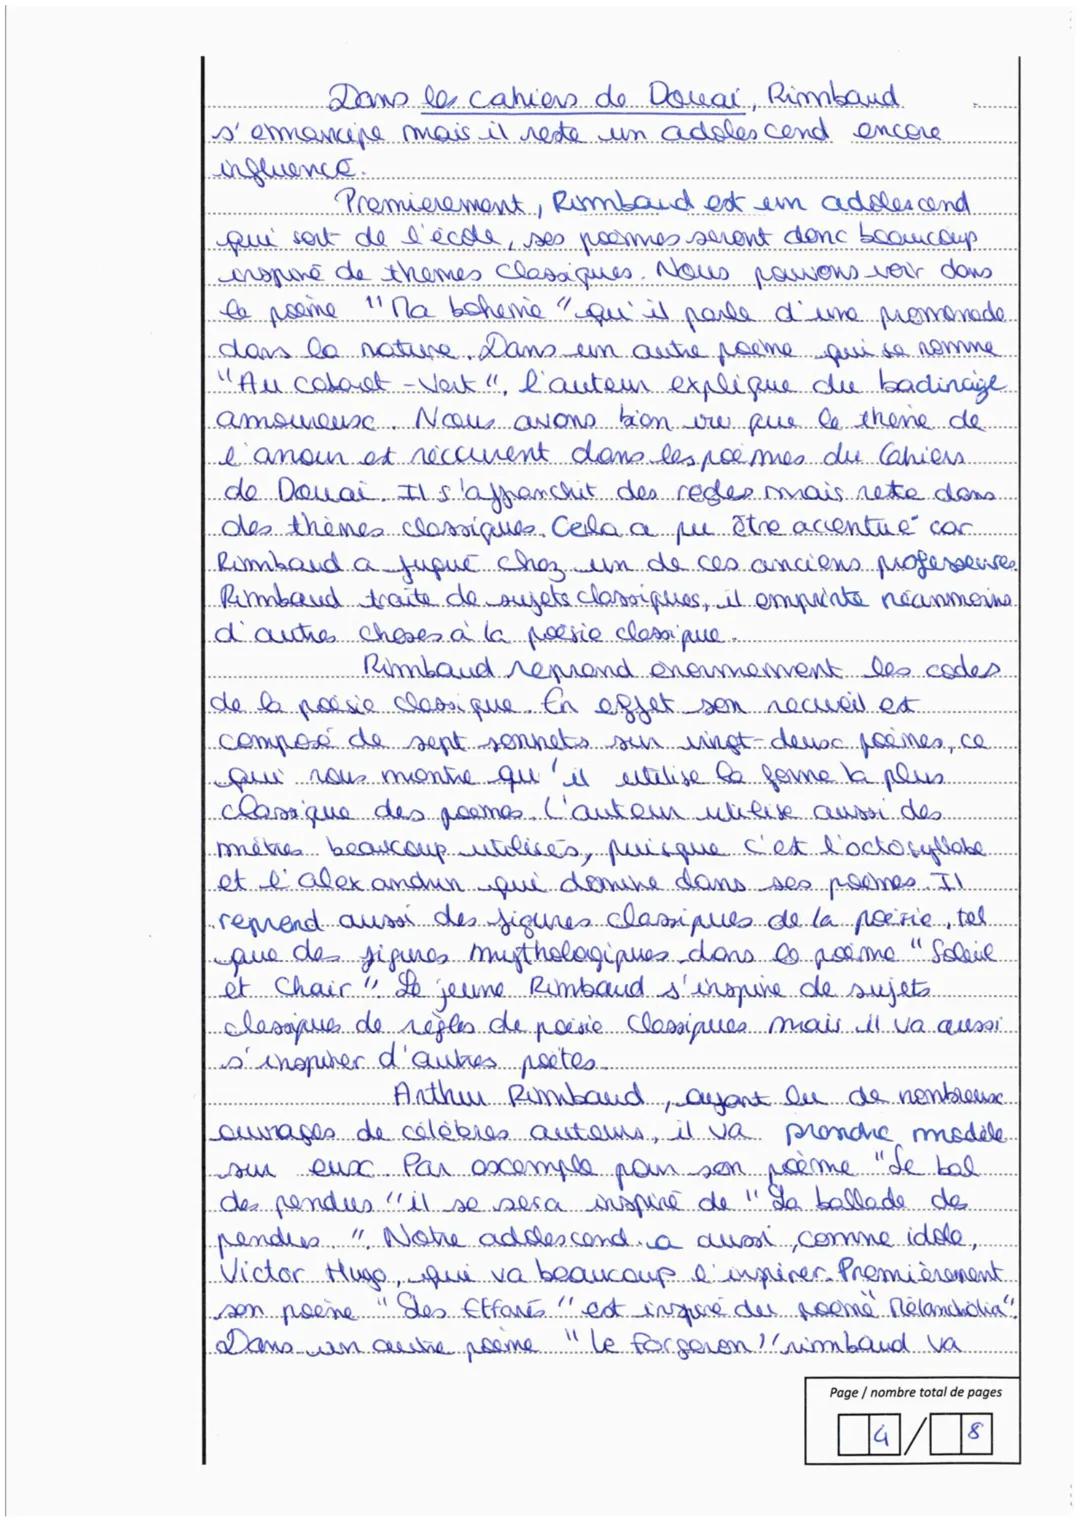 Dans les cahiers de Douai, Rimbaud
s'emmancipe mais il reste un adolescend encore
influencé.
Premierement, Rimbaud est un adolescend
qui sort de l'école, ses poèmes seront donc beaucoup
inspiré de themes classiques. Nous pouvons voir dans
le poème "Ma bohemie" qu'il parle d'une promenade
dans la nature. Dans un autre poeme qui se nomme
"Au cabaret-Vert", l'auteur explique du badinage
amoureux. Nous avons bien vu que le theme de
l'amour est récurent dans les poèmes du Cahiers
de Douai. Il s'affranchit des regles mais reste dans
des thèmes classiques. Cela a pu être accentué car
Rimbaud a fugué chez un de ces anciens professeures.
Rimbaud traite de sujets classiques, il emprinte néanmoins
d'autres choses à la poésie classique.
Rimbaud reprend enormement les codes
de la poésie classique. En effet son recueil est
composé de sept sonnets sur vingt-deux poèmes, ce
qui nous montre qu'il utilise la forme la plus
classique des poemes. L'auteur utilise aussi des
mètres beaucoup utilisés, puisque c'est l'octosyllabe
et l'alexandrin qui domine dans ses poèmes. Il
reprend aussi des figures classiques de la poésie, tel
que des figures mythologiques dans le poème "Soleil
et Chair". Le jeune Rimbaud s'inspire de sujets
classiques de règles de poésie classiques mais il va aussi
s'inspirer d'autres poètes.
Arthur Rimbaud, ayant lu de nombreux
ouvrages de célèbres auteurs, il va prendre modèle
sur eux. Par exemple pour son poème "Le bal
des pendus" il se sera inspiré de "La ballade des
pendus". Notre adolescend a aussi, comme idole,
Victor Hugo, qui va beaucoup l'inspirer. Premièrement
son poème "Les Effarés" est inspiré du poeme "Mélancholia".
Dans un autre poème "le forgeron" rimbaud va
Page / nombre total de pages
4 / 8